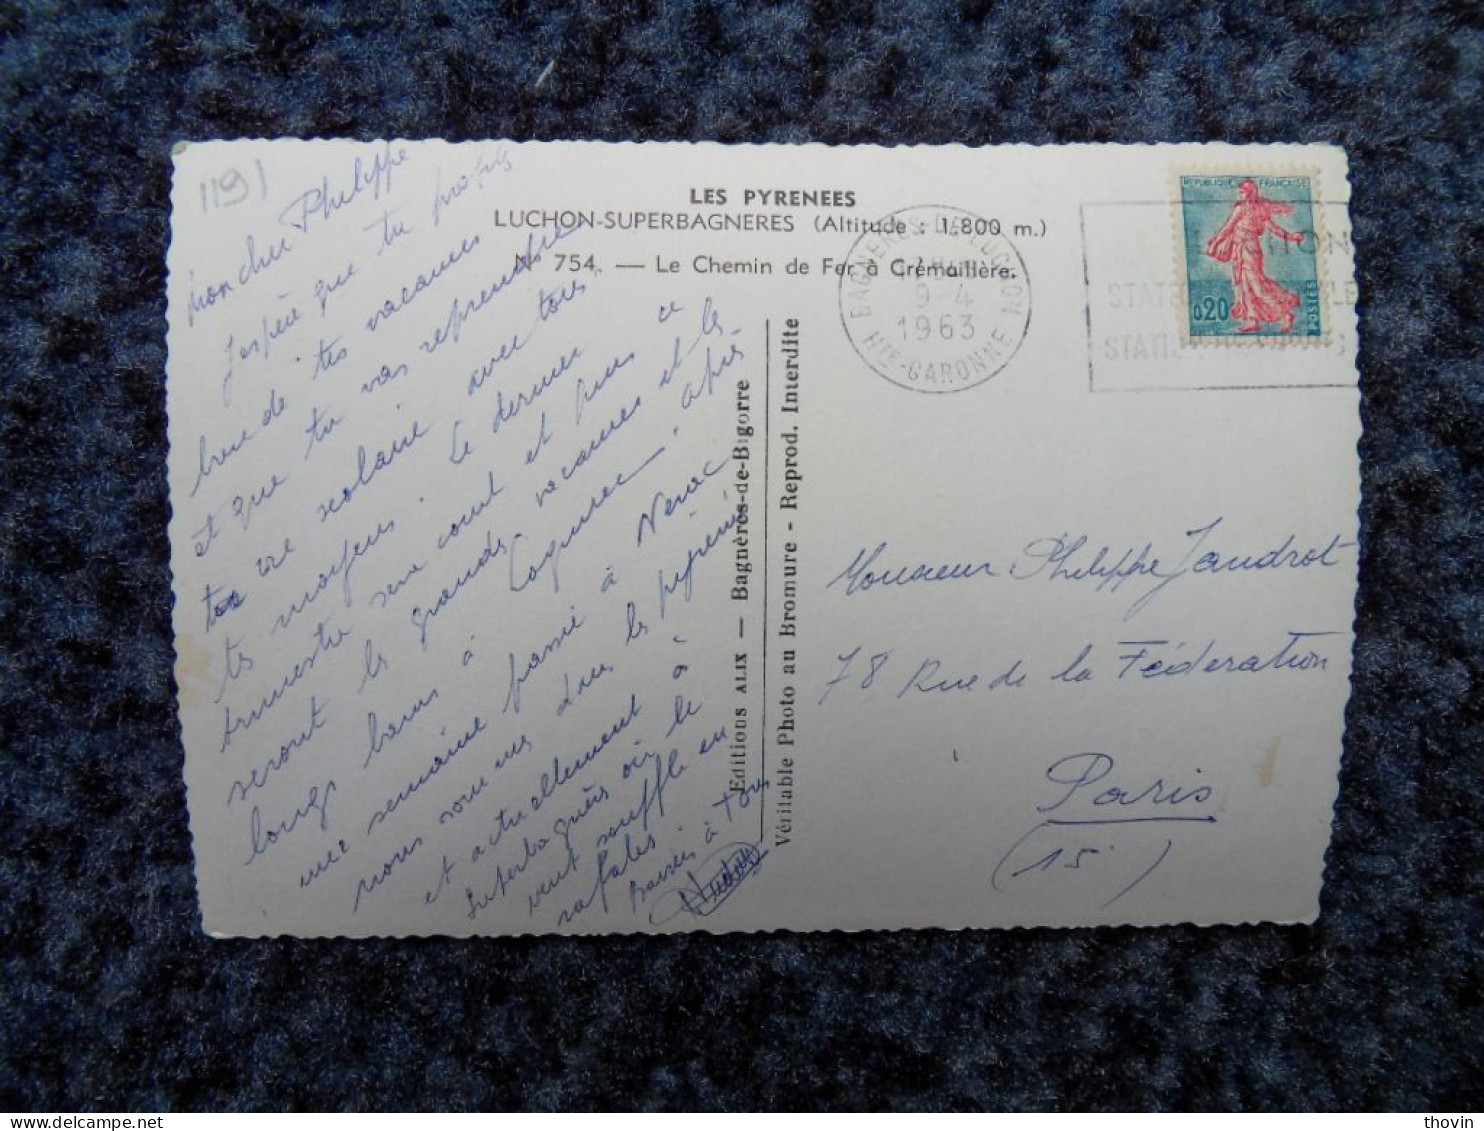 1191
LES PYRENEES
LUCHON-SUPERBAGNERES (Altitude : 1.800 m.)
N° 754. — Le Chemin de Fer à Crémaillère.
Mon cher Philippe
J'espère que tu profites
bien de tes vacances
et que tu vas reprendre
ta vie scolaire avec tous
tes moyens. Ce dernier
trimestre sera court et puis ce
seront les grandes vacances et les
longs bains à après
une semaine passée à Nérac
nous sommes dans les pyrénées
et actuellement à
Superbagnères où le
vent souffle en
rafales.
Baisers à tous
Editions ALIX — Bagnères-de-Bigorre
Véritable Photo au Bromure - Reprod. Interdite
BAGNERES-DE-LUCHON
9-4
1963
HTE-GARONNE
REPUBLIQUE FRANÇAISE
0,20
POSTES
Monsieur Philippe Jandrot
78 Rue de la Féderation
Paris
(15.)
thovin